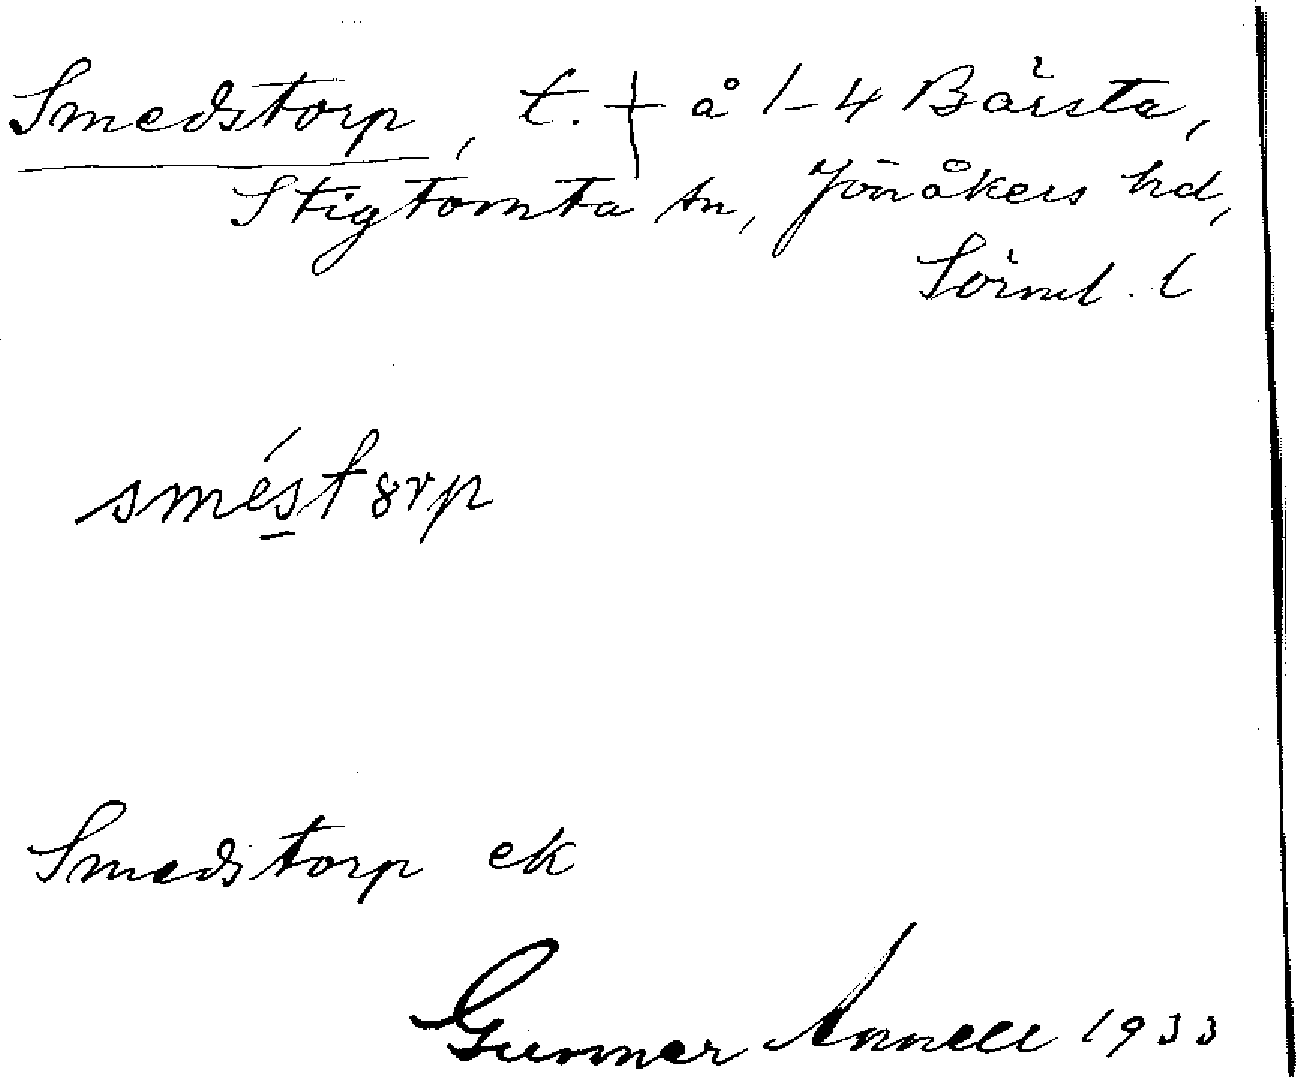 Smedstorp, t. † å 1-4 Bärsta,
Stigtomta sn, Jönåkers hd,
Sörml. l
sméstȣrp
Smedstorp ek
Gunnar Annell 1933